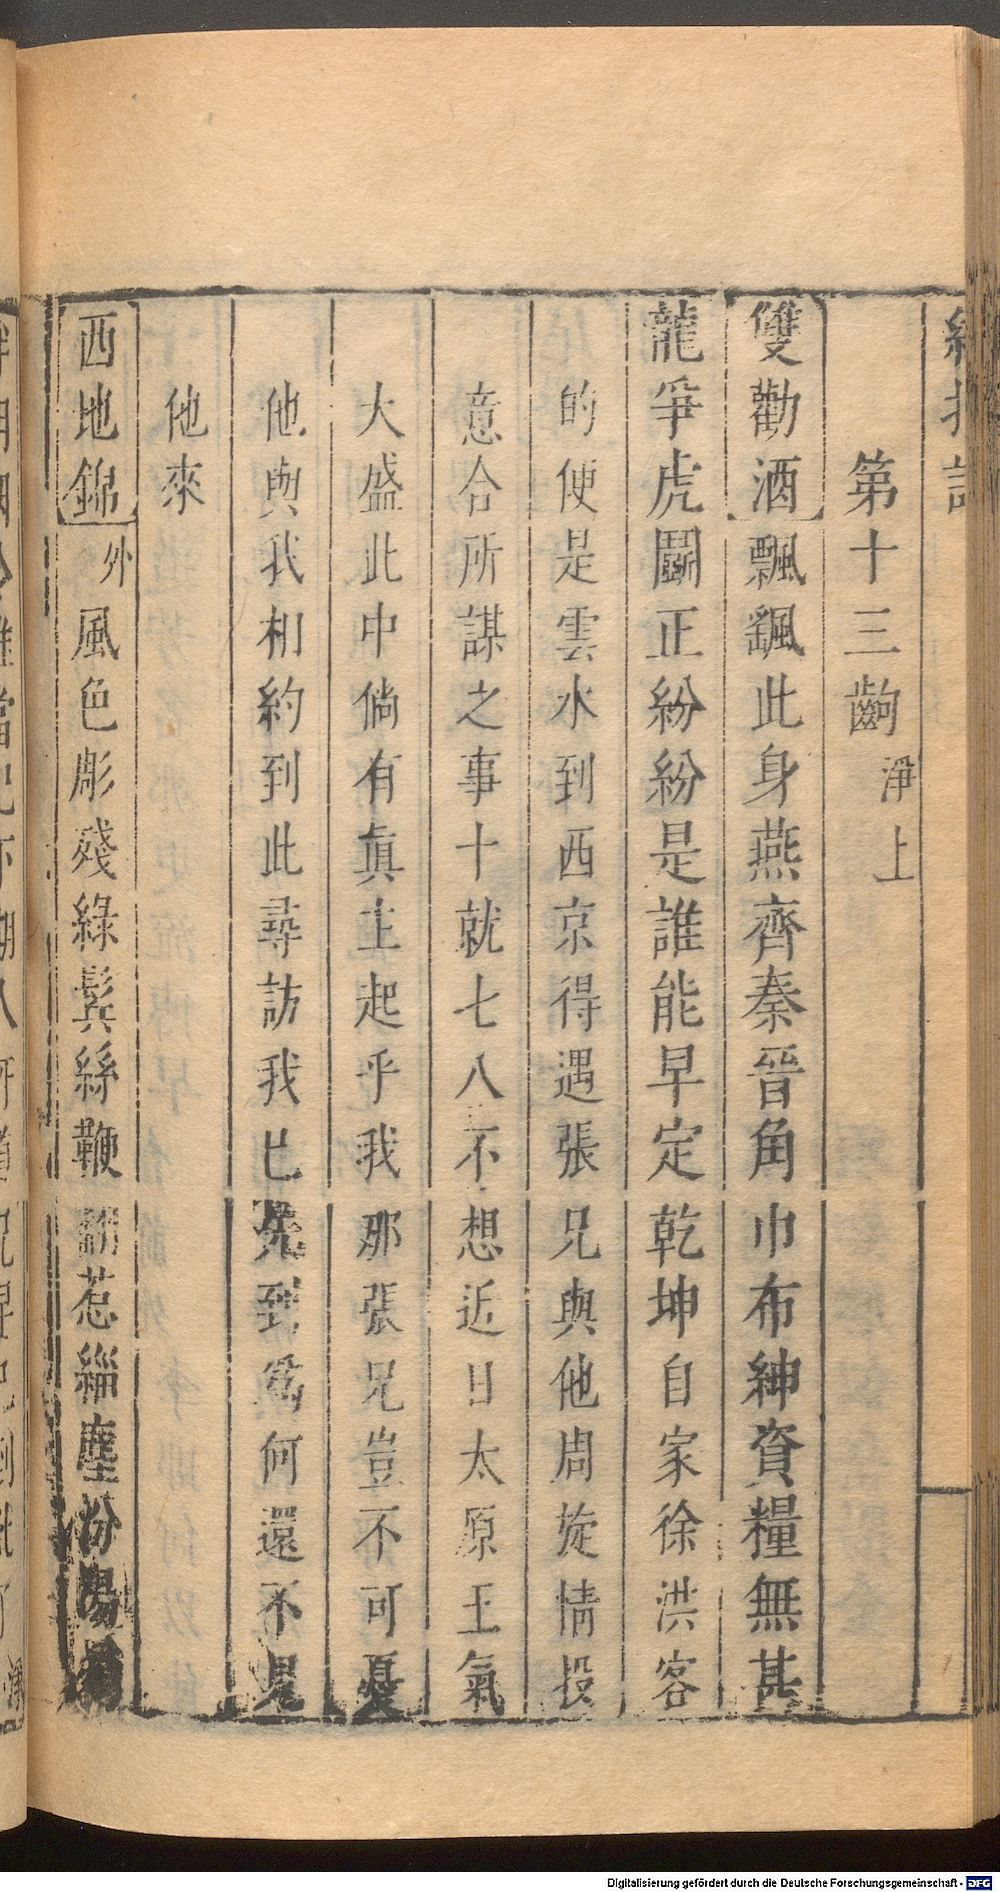 第十三齣 淨上
雙勸酒飄颻此身燕齊秦晉角巾布紳資糧無甚
龍爭虎鬭正紛紛是誰能早定乾坤自家徐洪客
的便是雲水到西京得遇張兄與他周旋情投
意合所謀之事十就七八不想近日太原王氣
大盛此中倘有眞主起乎我那張兄豈不可憂
他與我相約到此尋訪我已先到爲何還不見
他來
西地錦外風色彫殘綠鬂絲鞭惹緇塵汾陽
Digitalisierung gefördert durch die Deutsche Forschungsgemeinschaft - DFG